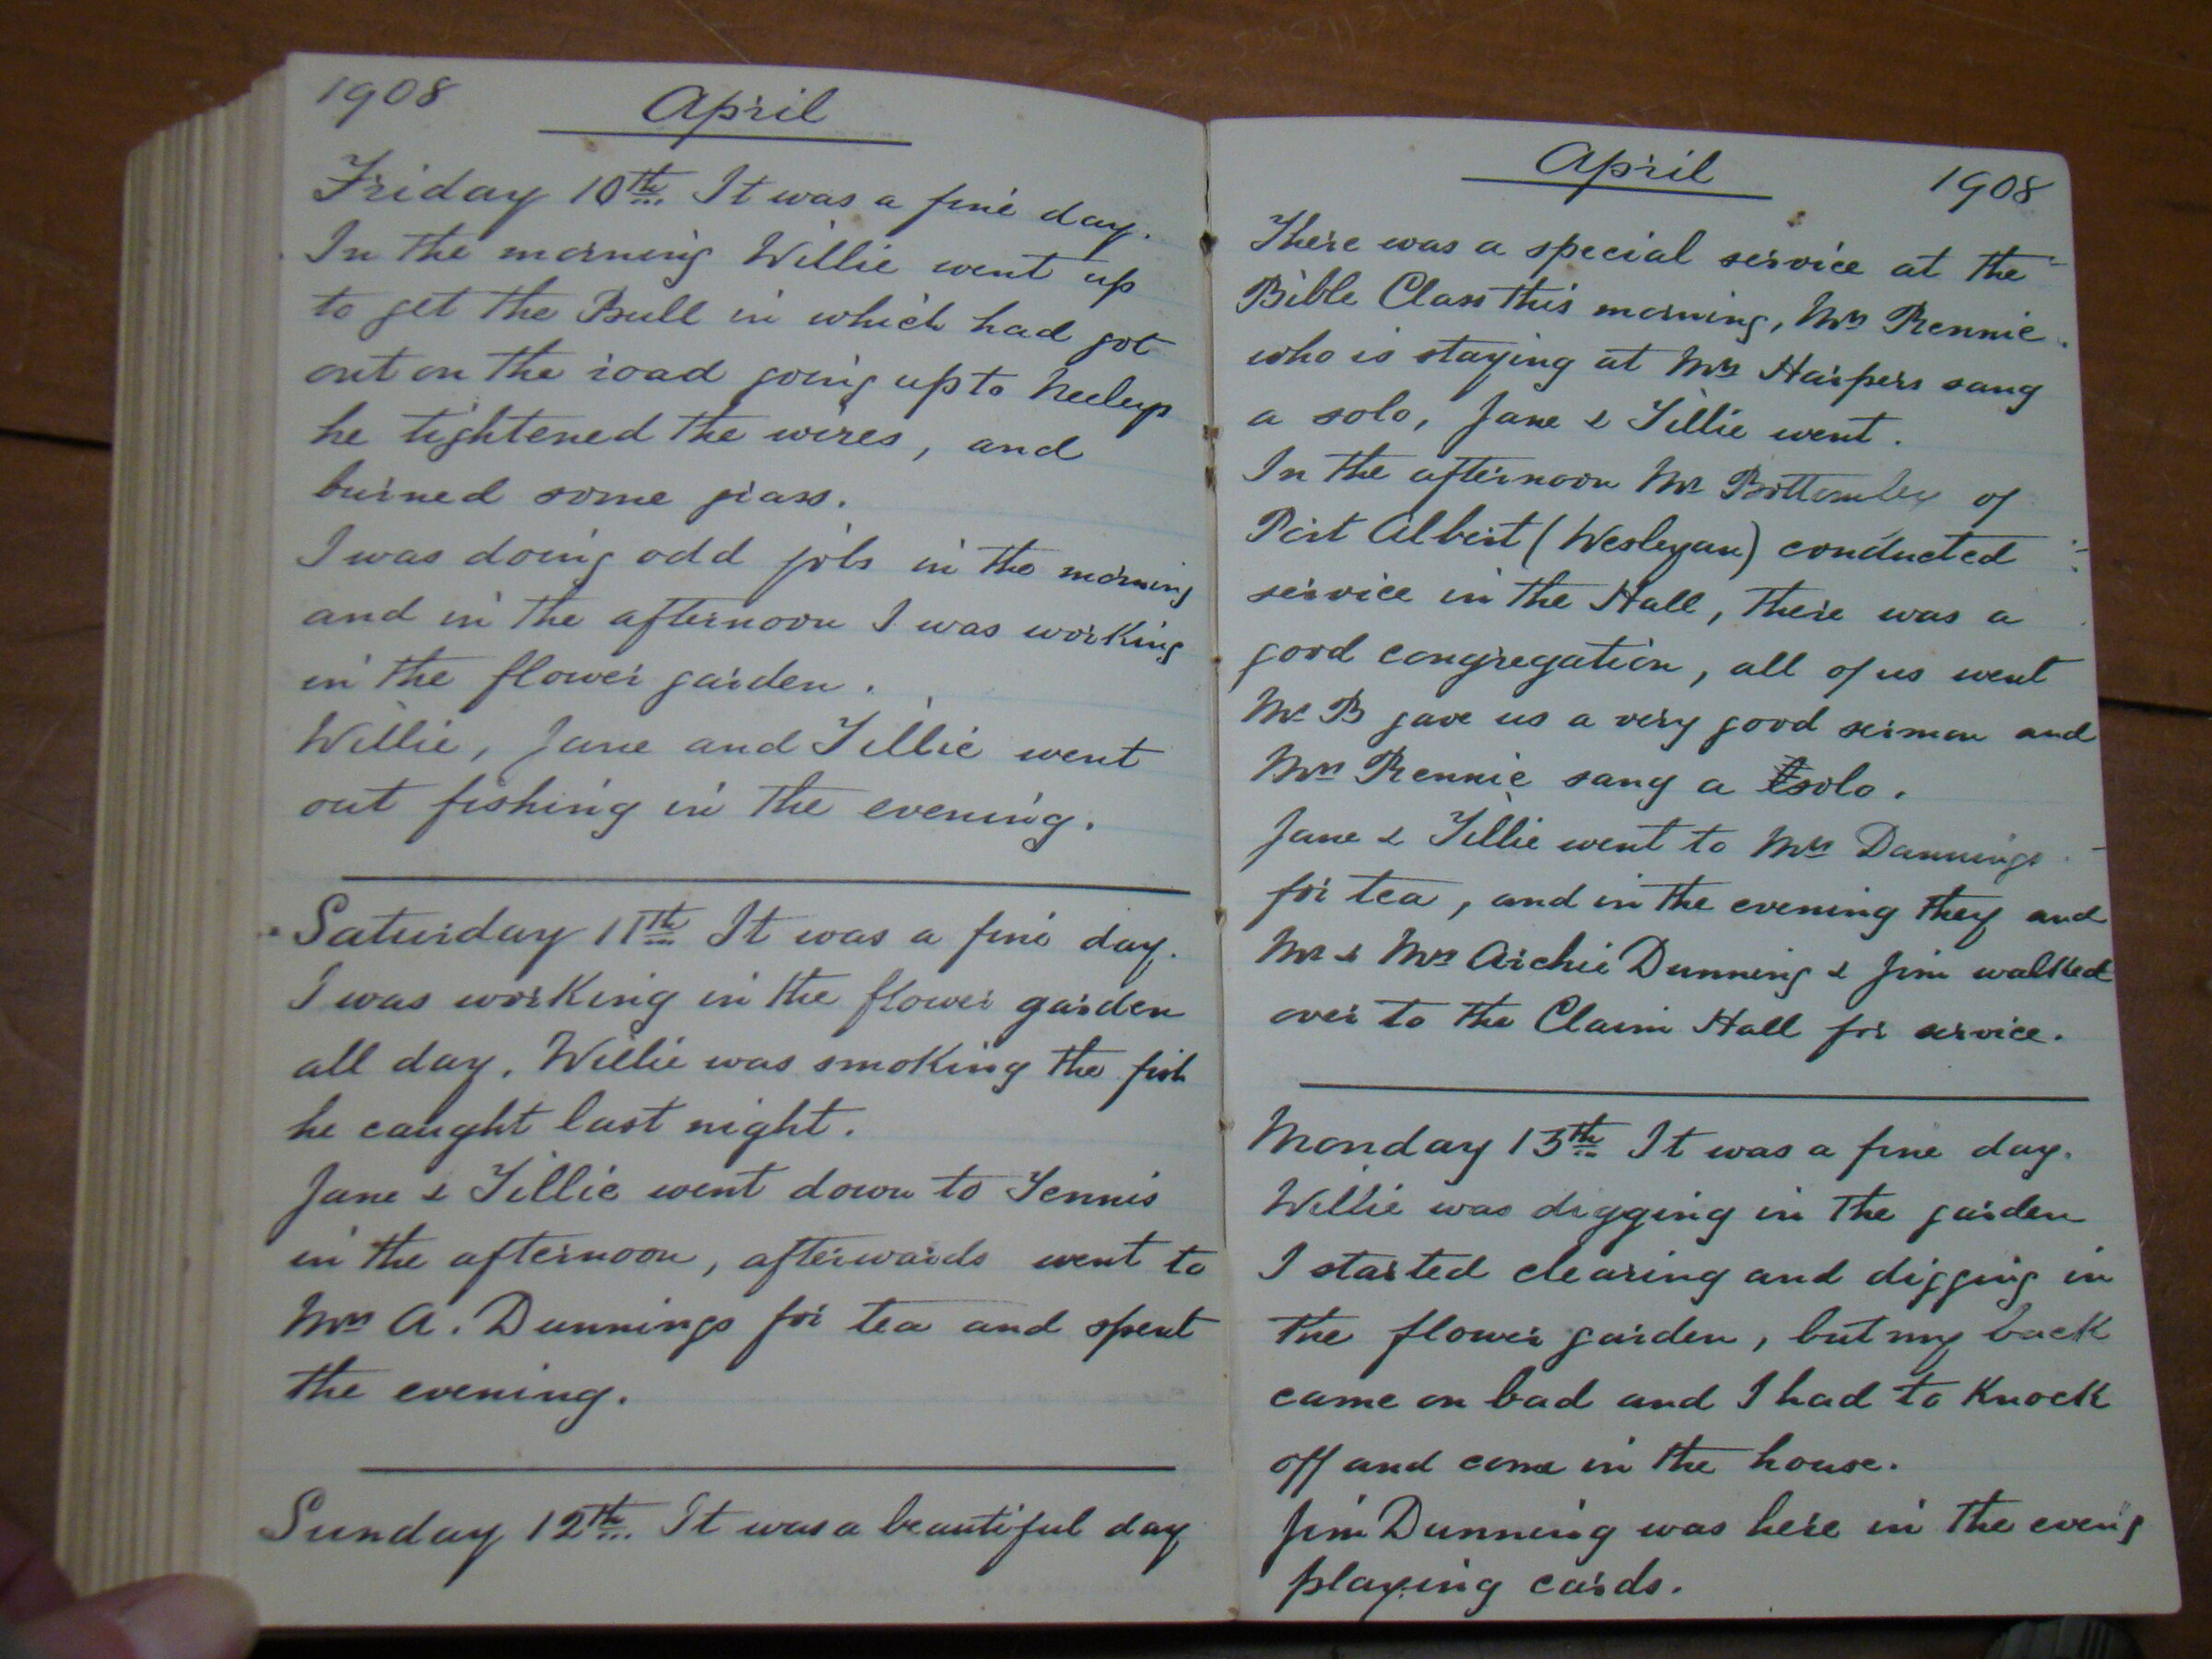 1908
April
Friday 10th It was a fine day.
In the morning Willie went up
to get the Bull in which had got
out on the road going up to
he tightened the wires, and
burned some grass.
I was doing odd jobs in the morning
and in the afternoon I was working
in the flower garden.
Willie, Jane and Tillie went
out fishing in the evening.
Saturday 11th It was a fine day.
I was working in the flower garden
all day. Willie was smoking the fish
he caught last night.
Jane & Tillie went down to Tennis
in the afternoon, afterwards went to
Mrs A. Dunnings for tea and spent
the evening.
Sunday 12th It was a beautiful day
April 1908
There was a special service at the
Bible Class this morning, Mrs Rennie
who is staying at Mrs Harpers sang
a solo, Jane & Tillie went.
In the afternoon Mr Bottomley of
Port Albert (Wesleyan) conducted
service in the Hall, there was a
good congregation, all of us went
Mr B gave us a very good sermon and
Mrs Rennie sang a solo.
Jane & Tillie went to Mrs Dunnings
for tea, and in the evening they and
Mr & Mrs Archie Dunning & Jim walked
over to the Claim Hall for service.
Monday 13th It was a fine day.
Willie was digging in the garden
I started clearing and digging in
the flower garden, but my back
came on bad and I had to knock
off and come in the house.
Jim Dunning was here in the eveng
playing cards.